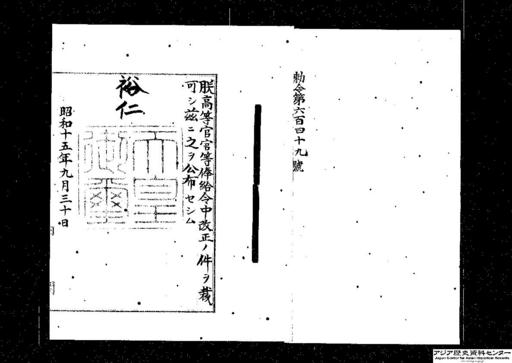 勅令第六百四十九號
朕高等官官等俸給令中改正ノ件ヲ裁
可シ茲ニ之ヲ公布セシム
裕仁
天皇御璽
昭和十五年九月三十日
アジア歴史資料センター
Japan Center for Asian Historical Records